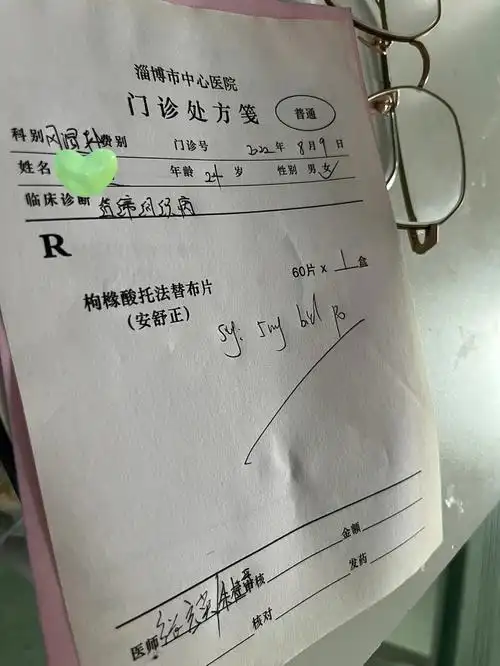 淄博市中心医院
门诊处方笺 普通
科别 风湿科 费别 门诊号 2022 年 8 月 9 日
姓名 年龄 24 岁 性别 男 女
临床诊断
R
枸橼酸托法替布片 60片 × 1 盒
(安舒正)
sy: 5mg bid po
金额
医师 审核 发药
核对